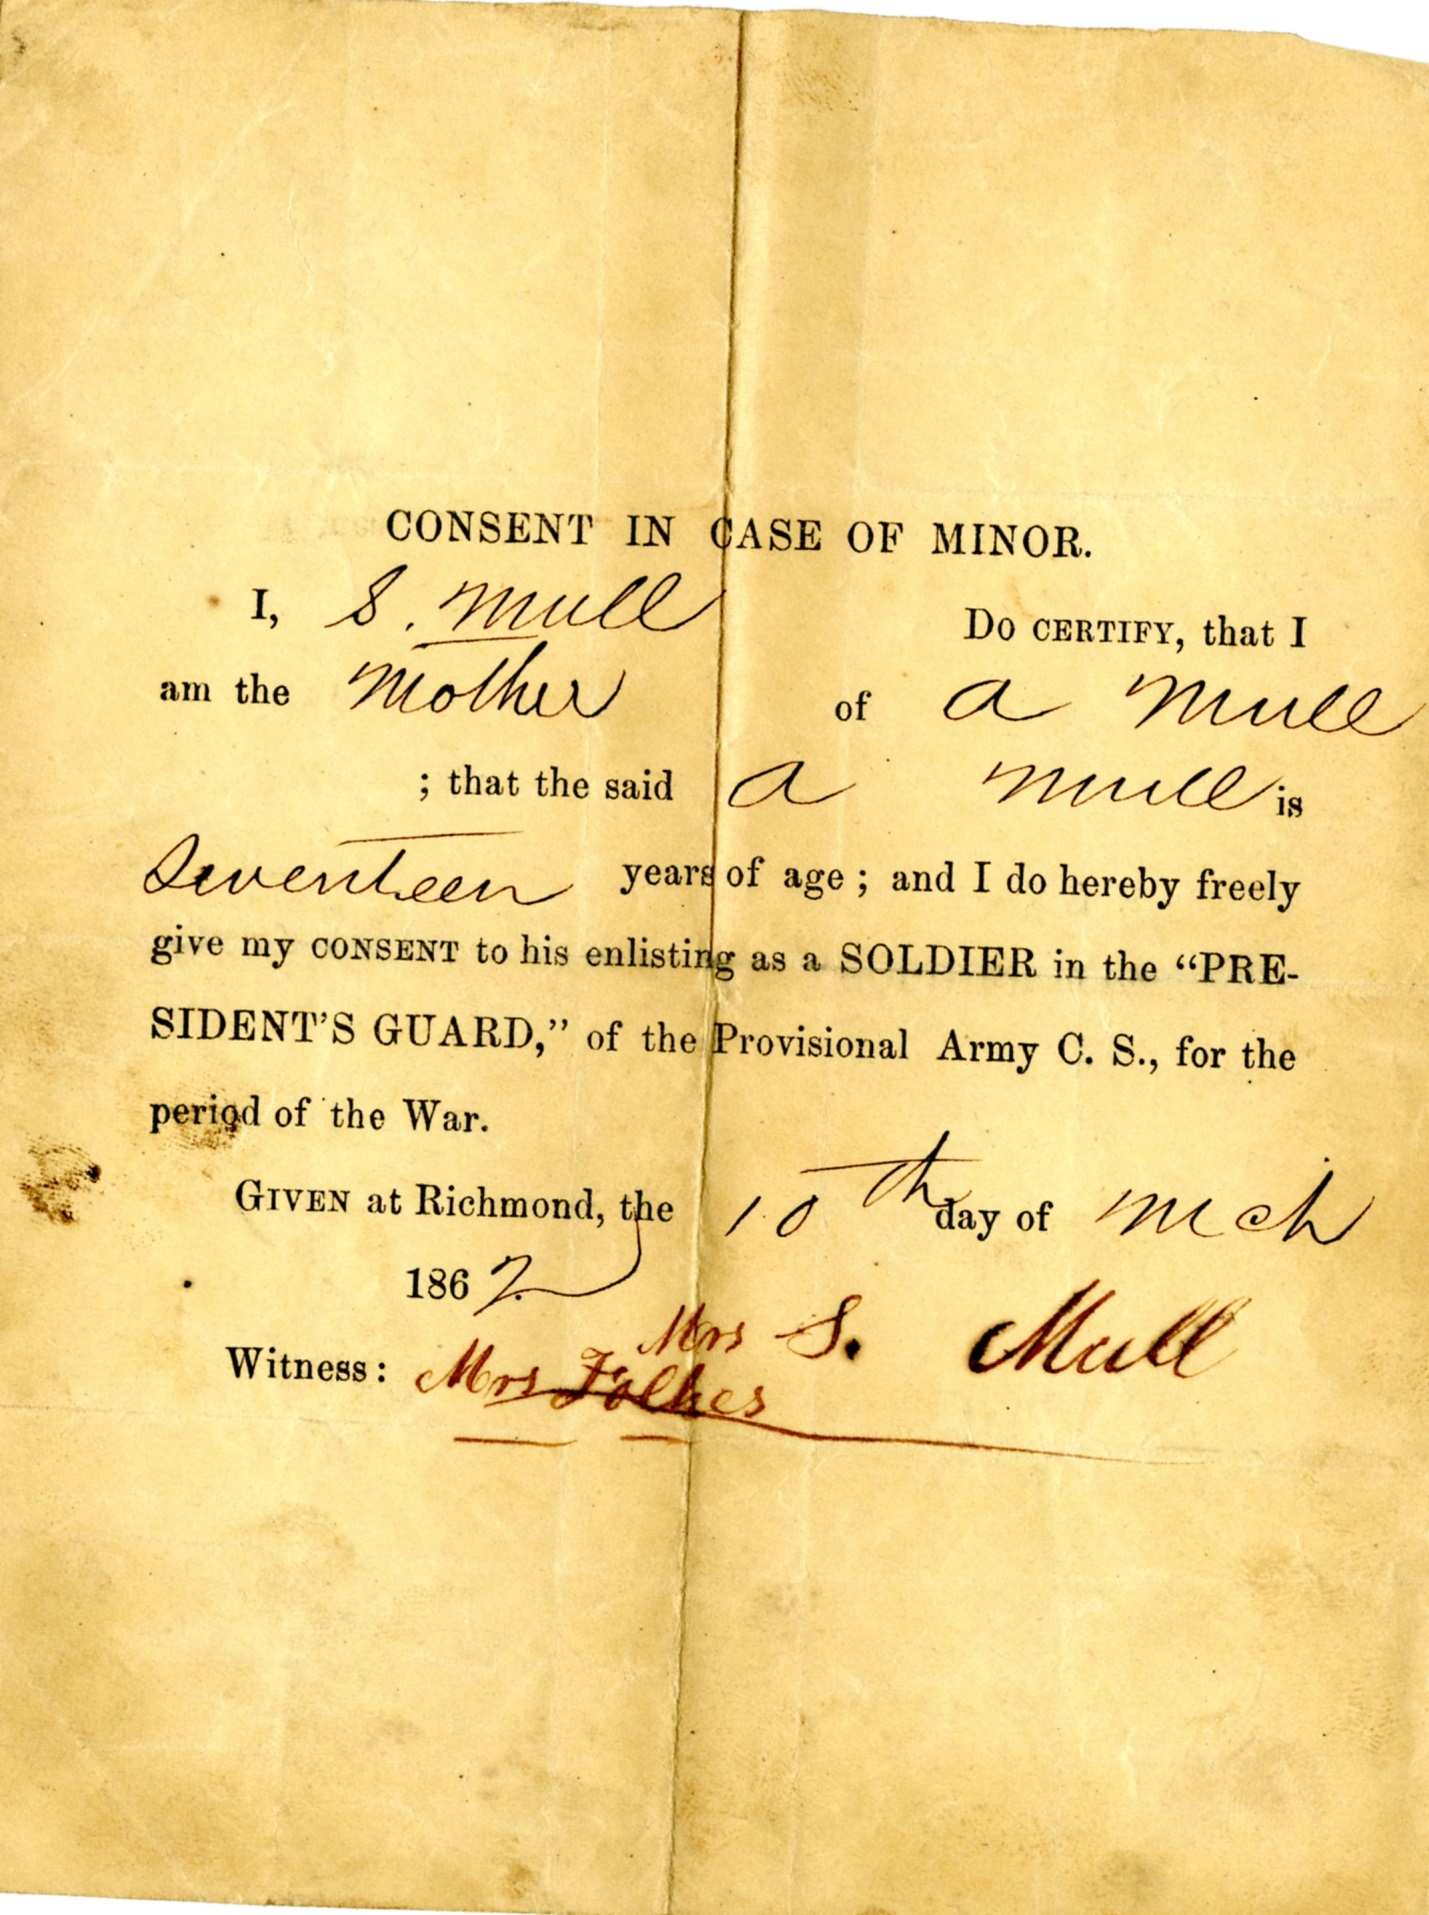 CONSENT IN CASE OF MINOR.
I, S. Mull Do certify, that I
am the Mother of A Mull
; that the said A Mull is
Seventeen years of age ; and I do hereby freely
give my CONSENT to his enlisting as a SOLDIER in the “PRE-
SIDENT’S GUARD,” of the Provisional Army C. S., for the
period of the War.
Given at Richmond, the 10th day of Mch
1862
Mrs S. Mull
Witness: Mrs Folkes